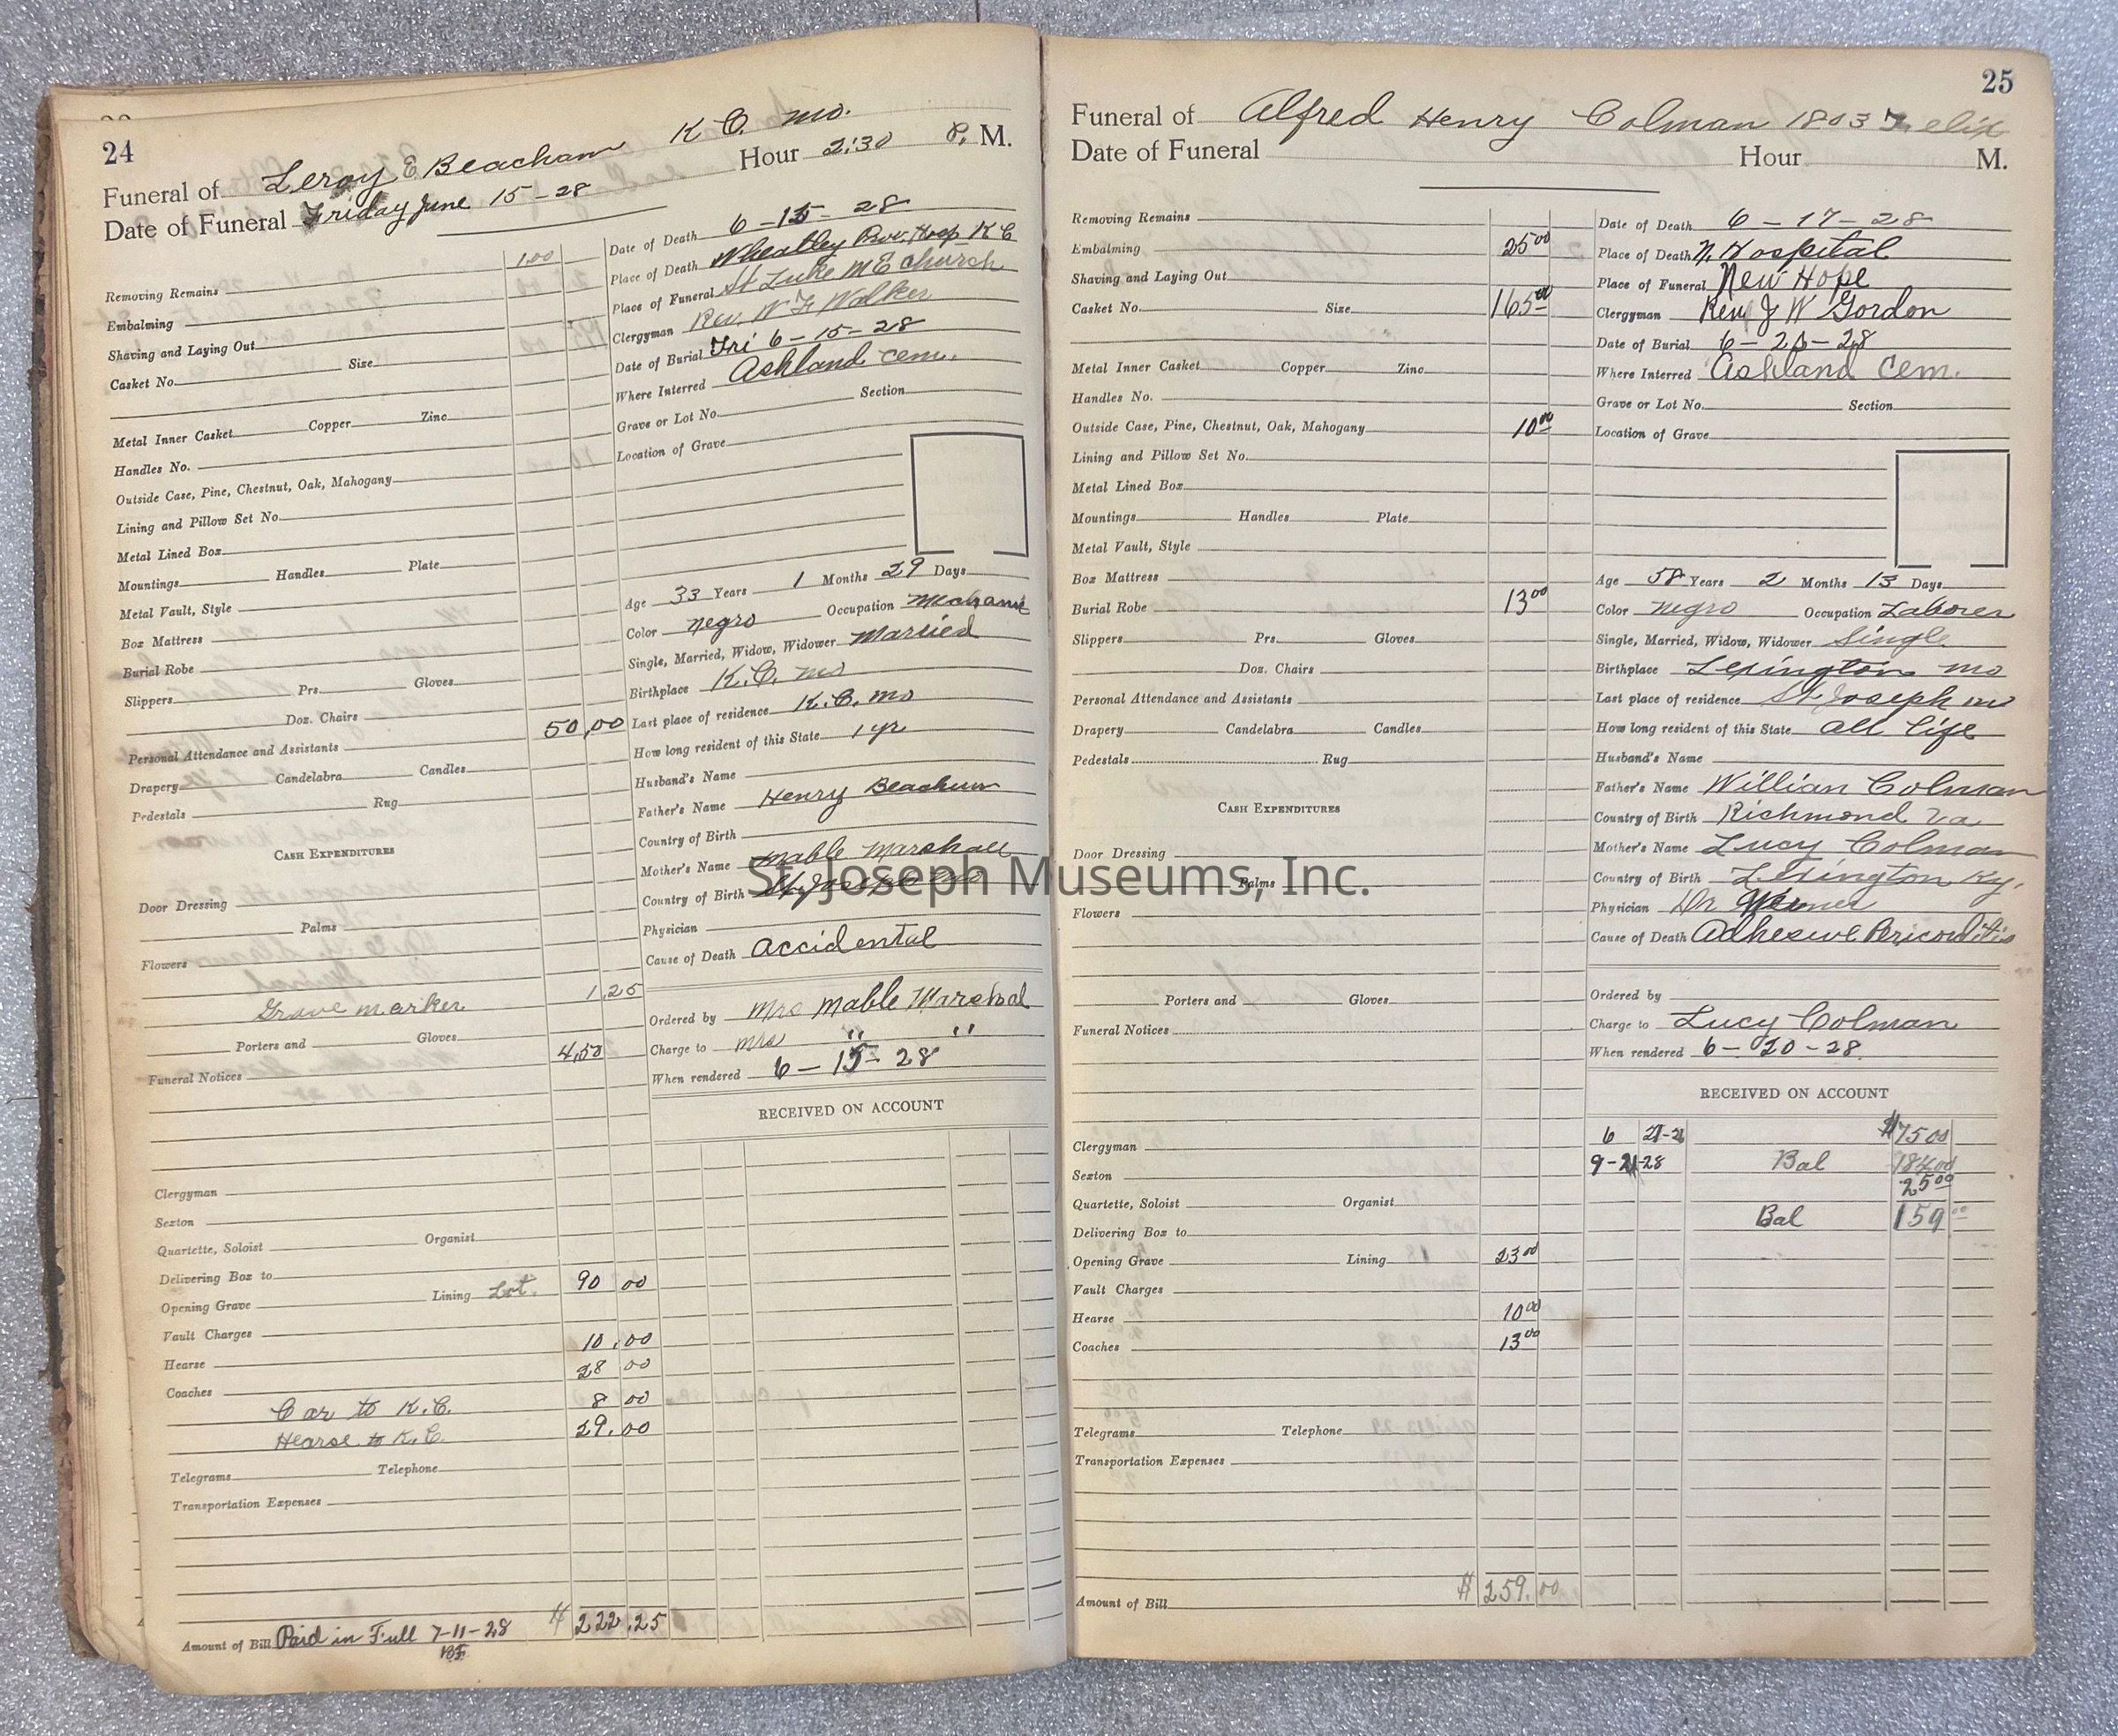 24
Funeral of Leroy E Beacham K C. Mo.
Date of Funeral Friday June 15-28 Hour 2:30 P. M.
Removing Remains 1.00
Embalming
Shaving and Laying Out
Casket No. Size
Metal Inner Casket Copper Zinc
Handles No.
Outside Case, Pine, Chestnut, Oak, Mahogany
Lining and Pillow Set No.
Metal Lined Box
Mountings Handles Plate
Metal Vault, Style
Box Mattress
Burial Robe
Slippers Prs. Gloves
Doz. Chairs
Personal Attendance and Assistants 50,00
Drapery Candelabra Candles
Pedestals Rug
CASH EXPENDITURES
Door Dressing
Palms
Flowers
Grave marker 1,25
Porters and Gloves
Funeral Notices 4,50
Clergyman
Sexton
Quartette, Soloist Organist
Delivering Box to
Opening Grave Lining Lot. 90 00
Vault Charges
Hearse 10,00
Coaches 28 00
Car to K.C. 8 00
Hearse to K.C. 29.00
Telegrams Telephone
Transportation Expenses
Amount of Bill Paid in Full 7-11-28 $ 222.25
Date of Death 6-15-28
Place of Death Wheatley Prov. Hosp K C
Place of Funeral St Luke M E Church
Clergyman Rev. W F Walker
Date of Burial Fri 6-15-28
Where Interred Ashland Cem.
Grave or Lot No. Section
Location of Grave
Age 33 Years 1 Months 29 Days
Color negro Occupation Mechanic
Single, Married, Widow, Widower Married
Birthplace K.C. Mo
Last place of residence K.C. Mo
How long resident of this State 1 yr
Husband's Name
Father's Name Henry Beachum
Country of Birth
Mother's Name Mable Marshall
Country of Birth St Joseph Mo
Physician
Cause of Death Accidental
Ordered by Mrs Mable Marshal
Charge to Mrs " "
When rendered 6-15-28
RECEIVED ON ACCOUNT
25
Funeral of Alfred Henry Colman 1803 Felix
Date of Funeral Hour M.
Removing Remains
Embalming 25 00
Shaving and Laying Out
Casket No. Size 165 00
Metal Inner Casket Copper Zinc
Handles No.
Outside Case, Pine, Chestnut, Oak, Mahogany 10 00
Lining and Pillow Set No.
Metal Lined Box
Mountings Handles Plate
Metal Vault, Style
Box Mattress
Burial Robe 13 00
Slippers Prs. Gloves
Doz. Chairs
Personal Attendance and Assistants
Drapery Candelabra Candles
Pedestals Rug
CASH EXPENDITURES
Door Dressing
Palms
Flowers
Porters and Gloves
Funeral Notices
Clergyman
Sexton
Quartette, Soloist Organist
Delivering Box to
Opening Grave Lining 23 00
Vault Charges
Hearse 10 00
Coaches 13 00
Telegrams Telephone
Transportation Expenses
Amount of Bill $ 259.00
Date of Death 6-17-28
Place of Death N. Hospital
Place of Funeral New Hope
Clergyman Rev J W Gordon
Date of Burial 6-20-28
Where Interred Ashland Cem.
Grave or Lot No. Section
Location of Grave
Age 58 Years 2 Months 13 Days
Color negro Occupation Laborer
Single, Married, Widow, Widower Single
Birthplace Lexington Mo
Last place of residence St Joseph Mo
How long resident of this State all life
Husband's Name
Father's Name Willian Colman
Country of Birth Richmond Va
Mother's Name Lucy Colman
Country of Birth Lexington Ky.
Physician Dr
Cause of Death Adhesive
Ordered by
Charge to Lucy Colman
When rendered 6-20-28
RECEIVED ON ACCOUNT
6 $75 00
9-21-28 Bal 184 00
25 00
Bal 159 00
St. Joseph Museums, Inc.